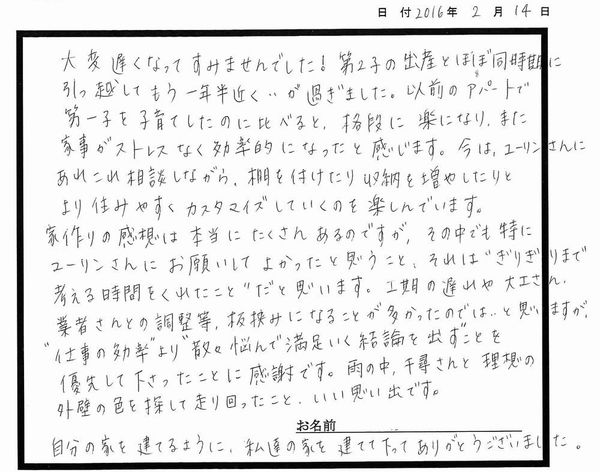 日 付 2016年 2 月 14 日
大変遅くなってすみませんでした! 第2子の出産とほぼ同時期に
引っ越してもう一年半近く‥が過ぎました。以前のアパートで
第一子を子育てしたのに比べると、格段に楽になり、また
家事がストレスなく効率的になったと感じます。今は、ユーリンさんに
あれこれ相談しながら、棚を付けたり収納を増やしたりと
より住みやすくカスタマイズしていくのを楽しんでいます。
家作りの感想は本当にたくさんあるのですが、その中でも特に
ユーリンさんにお願いしてよかったと思うこと、それは"ぎりぎりまで
考える時間をくれたこと"だと思います。工期の遅れや大工さん、
業者さんとの調整等、板挟みになることが多かったのでは‥と思いますが、
"仕事の効率"より"散々悩んで満足いく結論を出す"ことを
優先して下さったことに感謝です。雨の中、千尋さんと理想の
外壁の色を探して走り回ったこと、いい思い出です。
お名前
自分の家を建てるように、私達の家を建てて下さってありがとうございました。